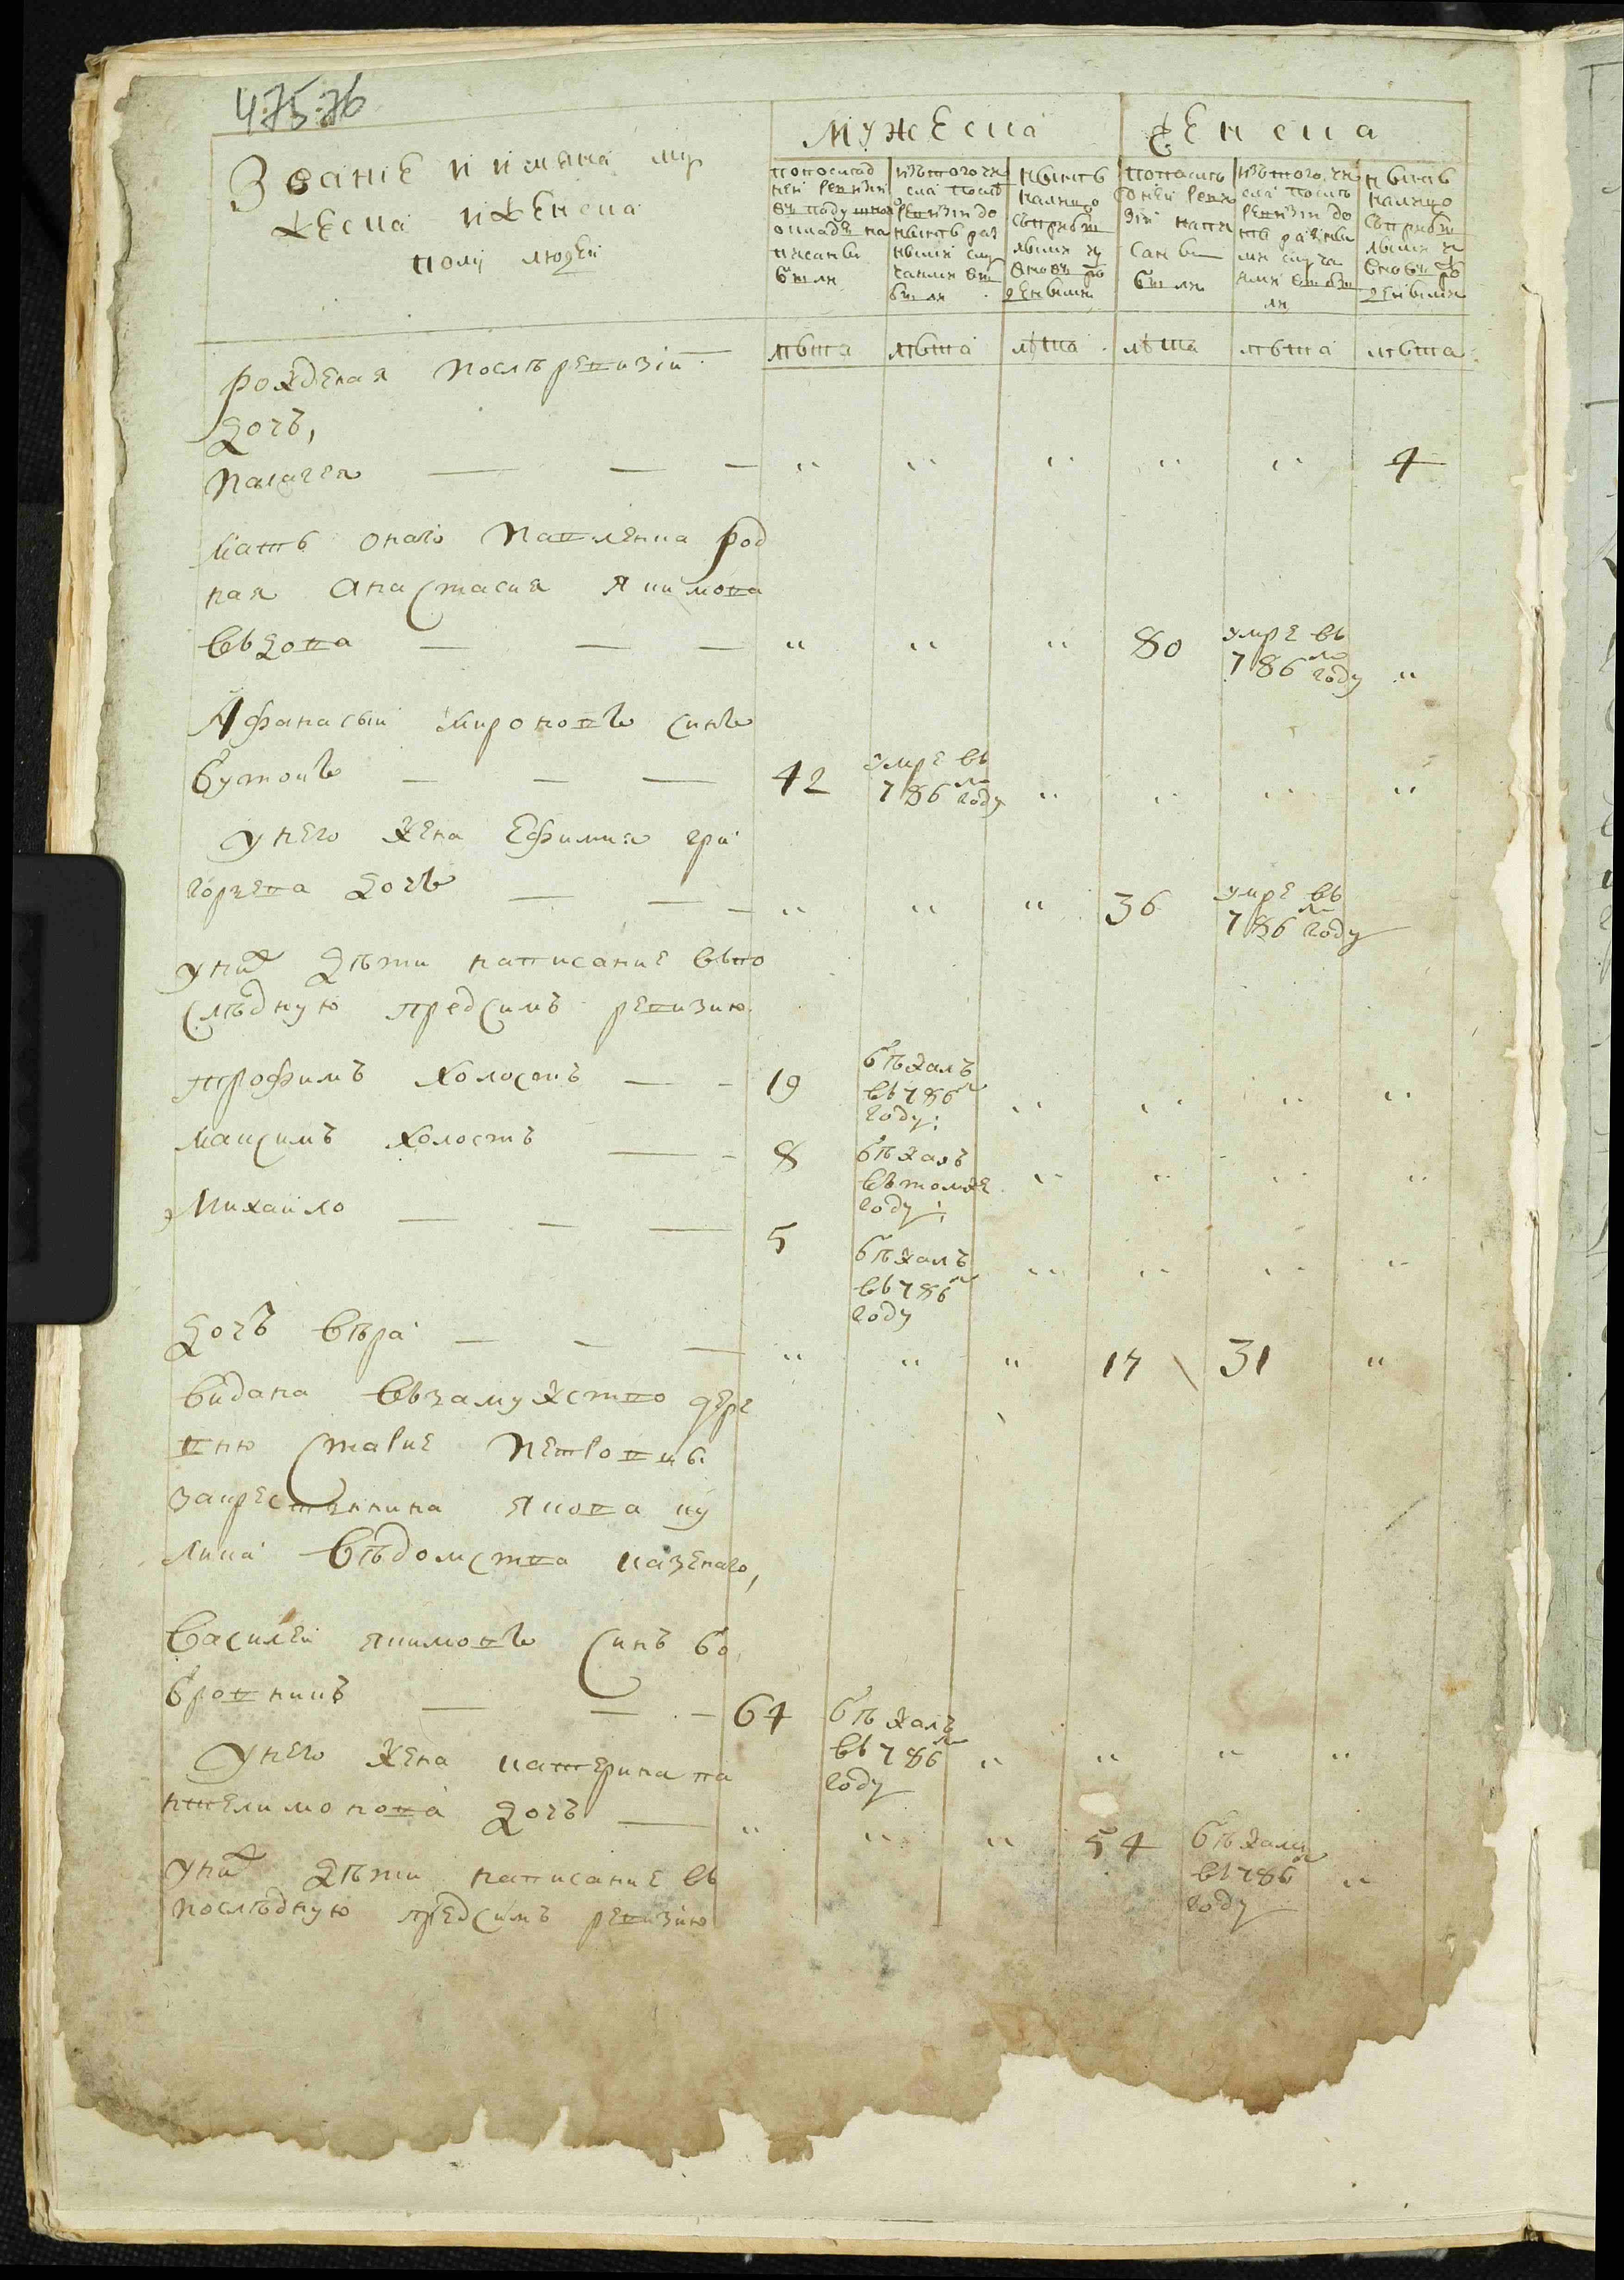 475. 76
Званiе и имяна муж
жеска и женска
полу людей
Мужеска
женска
попослѣд
ней ревизiи
въ подушно
окладѣ на
писаны
были
изътого чи
сла послѣ
ревизiи до
нынѣ раз
ными слу
чаями вы
были
нынѣ
налицо
съприбы
лыми и
вновь ро
ждеными
попослѣ
дней реви
зiи напи
саны
были
изътого чи
сла послѣ
ревизiи до
нѣ разны
ми случа
ями выбы
ли
нынѣ
налицо
съприбы
лыми и
вновь ро
ждеными
лѣта лѣта лѣта лѣта лѣта лѣта
рожденая послѣревизiи
дочъ,
Палагея — — — " " " " " 4
мать онаго Павленка род
ная Анастасия Якимова
въдова — — — " " " 80 умре въ 786м году "
Афанасьи Мироновъ синъ
бутокъ — — — 42 умре въ 786м году " " " "
Унего жена Ефимия гри
горьева дочъ — — — " " " 36 умре въ 786м году
унихъ дѣти написание въпо
слѣдную предсимъ ревизию
трофимъ холостъ — — 19 бѣжалъ въ786м году: " " " "
Максимъ холостъ — — 8 бѣжалъ вътомже году: " " " "
Михайло — — — 5 бѣжалъ въ786м году " " " "
Дочъ вѣра — — — " " " 17 31 "
видана възамужство дере
вню Старие Петровцы
закрестьянина Якова ку
лика вѣдомства казенаго,
Василей якимовъ Синъ бо
бровникъ — — — 64 бѣжалъ въ786м году " " " "
Унего жена катерина па
нтелимонова дочъ — " " " 54 бѣжала въ786м году "
унихъ дѣти написание въ
послѣдную предсимъ ревизию